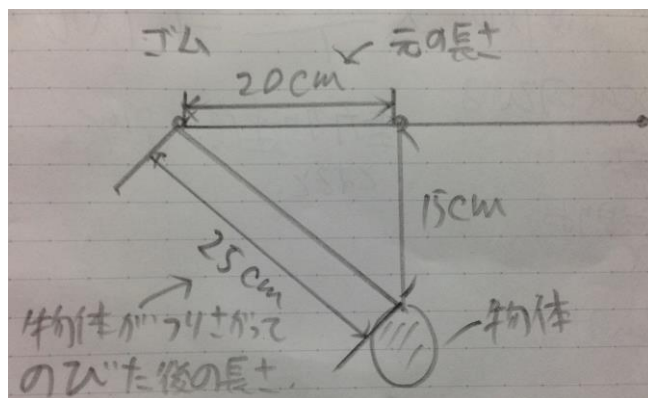 ゴム
元の長さ
20cm
15cm
25cm
物体
物体がつりさがって
のびた後の長さ.